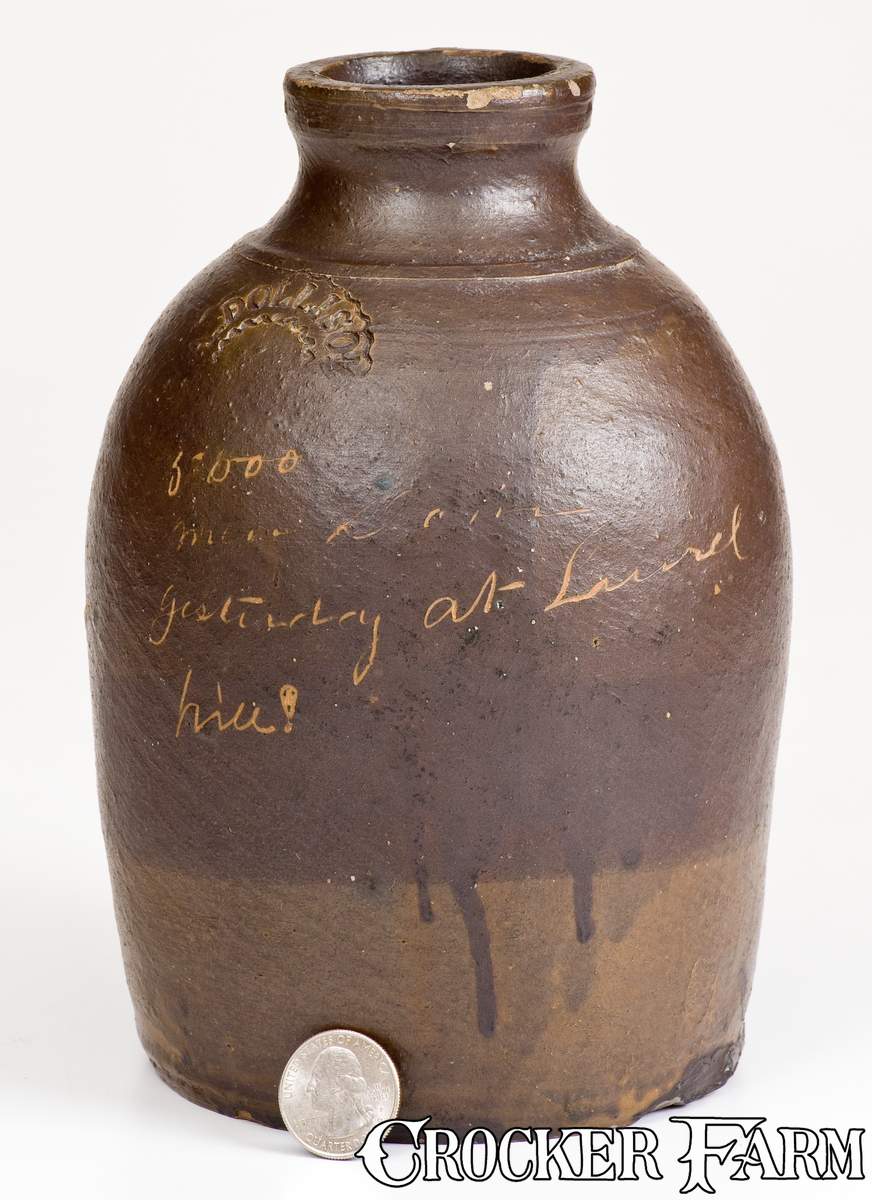 DOLLISON
men
yesterday at Laurel
hill!
UNITED STATES OF AMERICA
QUARTER
CROCKER FARM